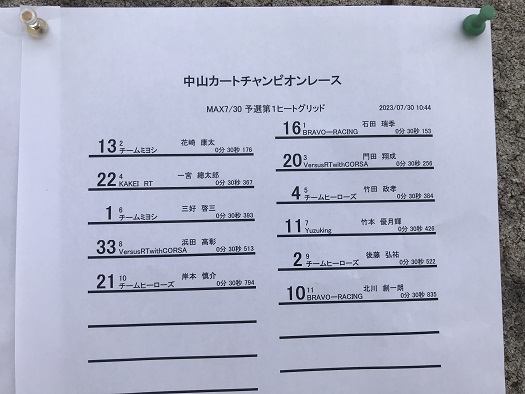 中山カートチャンピオンレース
MAX7/30 予選第1ヒートグリッド 2023/07/30 10:44
16 1 石田 瑞季
BRAVOーRACING 0分 30秒 153
13 2 花崎 康太
チームミヨシ 0分 30秒 176
20 3 門田 翔成
VersusRTwithCORSA 0分 30秒 256
22 4 一宮 總太郎
KAKEI RT 0分 30秒 367
4 5 竹田 政孝
チームヒーローズ 0分 30秒 384
1 6 三好 啓三
チームミヨシ 0分 30秒 393
11 7 竹本 優月輝
Yuzuking 0分 30秒 428
33 8 浜田 高彰
VersusRTwithCORSA 0分 30秒 513
2 9 後藤 弘祐
チームヒーローズ 0分 30秒 522
21 10 岸本 慎介
チームヒーローズ 0分 30秒 794
10 11 北川 創一朗
BRAVOーRACING 0分 30秒 835